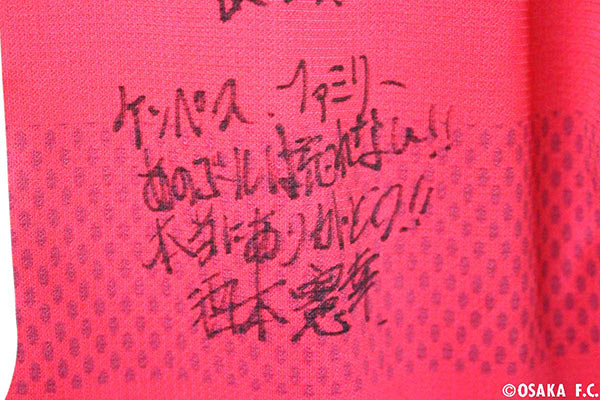 ケンペス、ファミリー
あのゴールは忘れない!!
本当にありがとう!!
酒本憲幸
©OSAKA F.C.